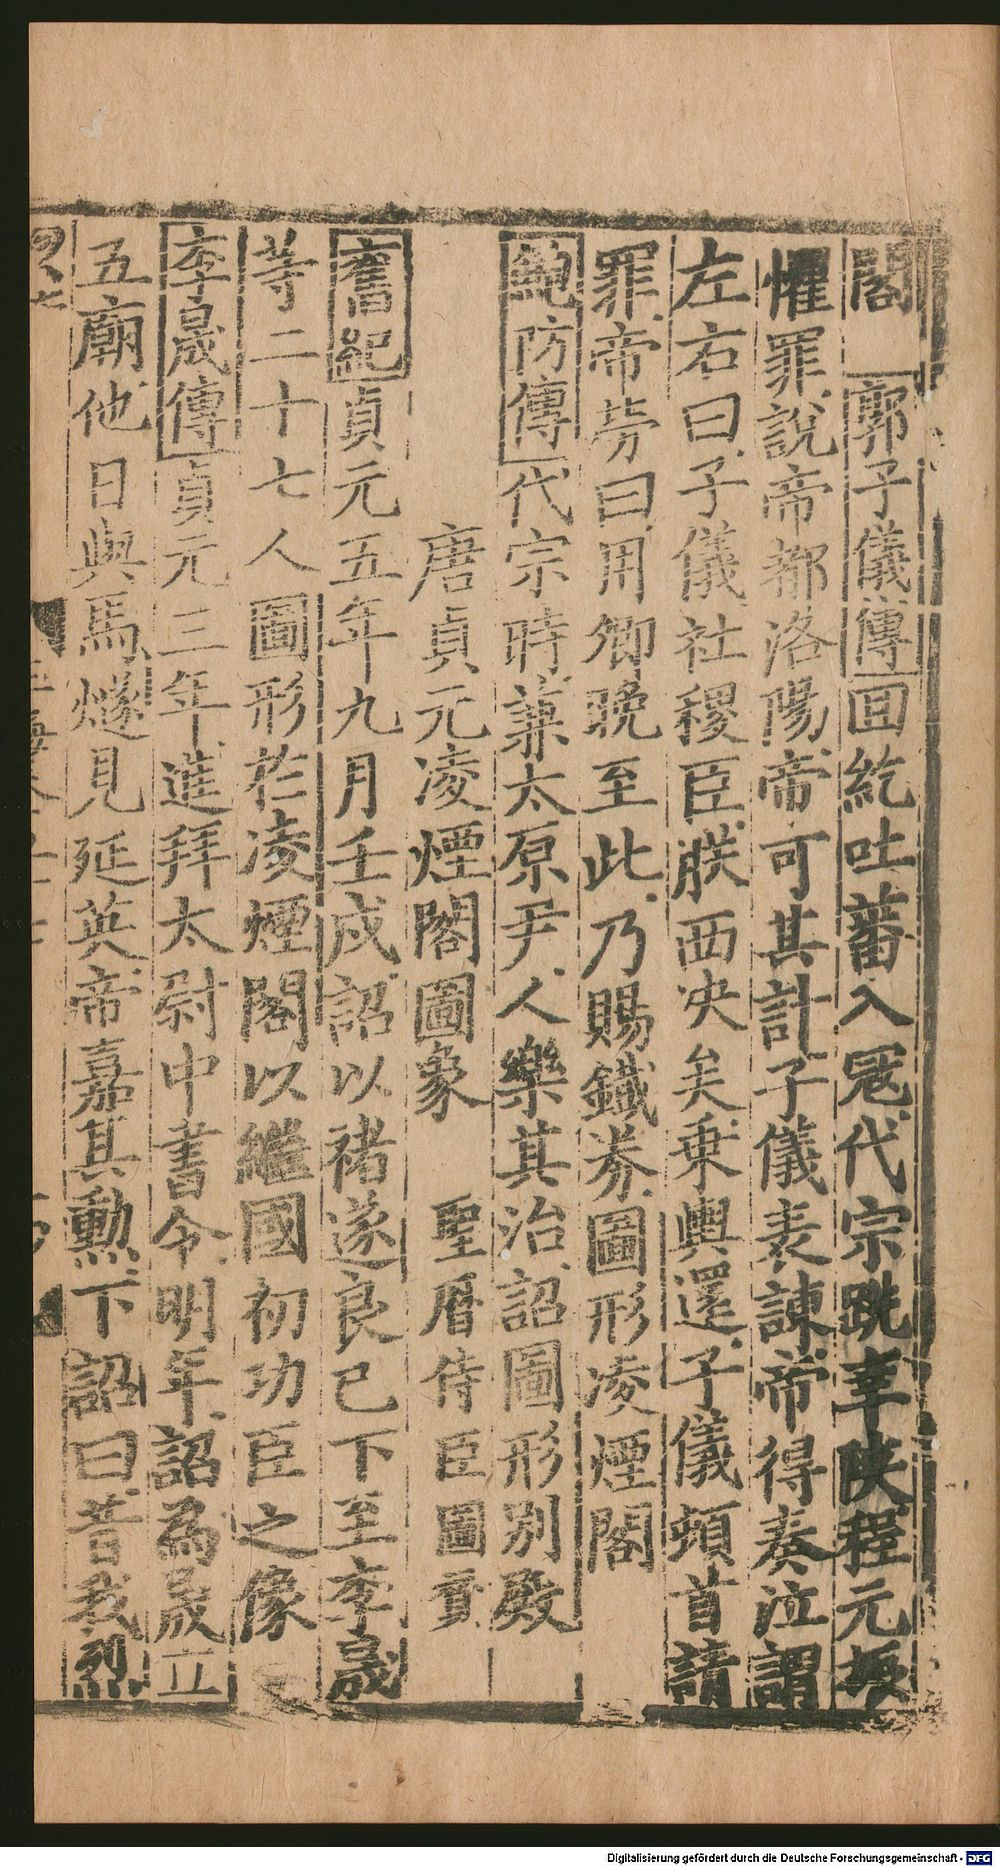 閣 郭子儀傳 回紇吐蕃入冦代宗跣幸陜程元振
懼罪說帝都洛陽帝可其計子儀表諫帝得奏泣謂
左右曰子儀社稷臣朕西决矣乗輿還子儀頓首請
罪帝勞曰用卿晚至此乃賜鐵券圖形凌煙閣
鮑防傳 代宗時兼太原尹人樂其治詔圖形别殿
唐貞元凌煙閣圖象 聖曆侍臣圖賛
舊紀 貞元五年九月壬戌詔以禇遂良已下至李晟
等二十七人圖形於凌煙閣以繼國初功臣之像
李晟傳 貞元三年進拜太尉中書令明年詔為晟立
五廟他日與馬燧見延英帝嘉其勲下詔曰昔我烈
Digitalisierung gefördert durch die Deutsche Forschungsgemeinschaft - DFG